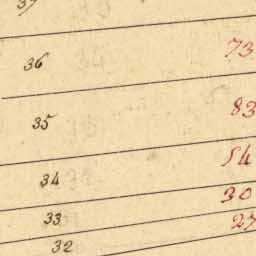 37
36 73
35 83
34 54
33 30
32 27